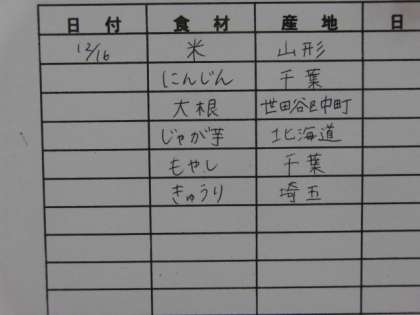 日付 食材 産地 日
12/16 米 山形
にんじん 千葉
大根 世田谷区中町
じゃが芋 北海道
もやし 千葉
きゅうり 埼玉